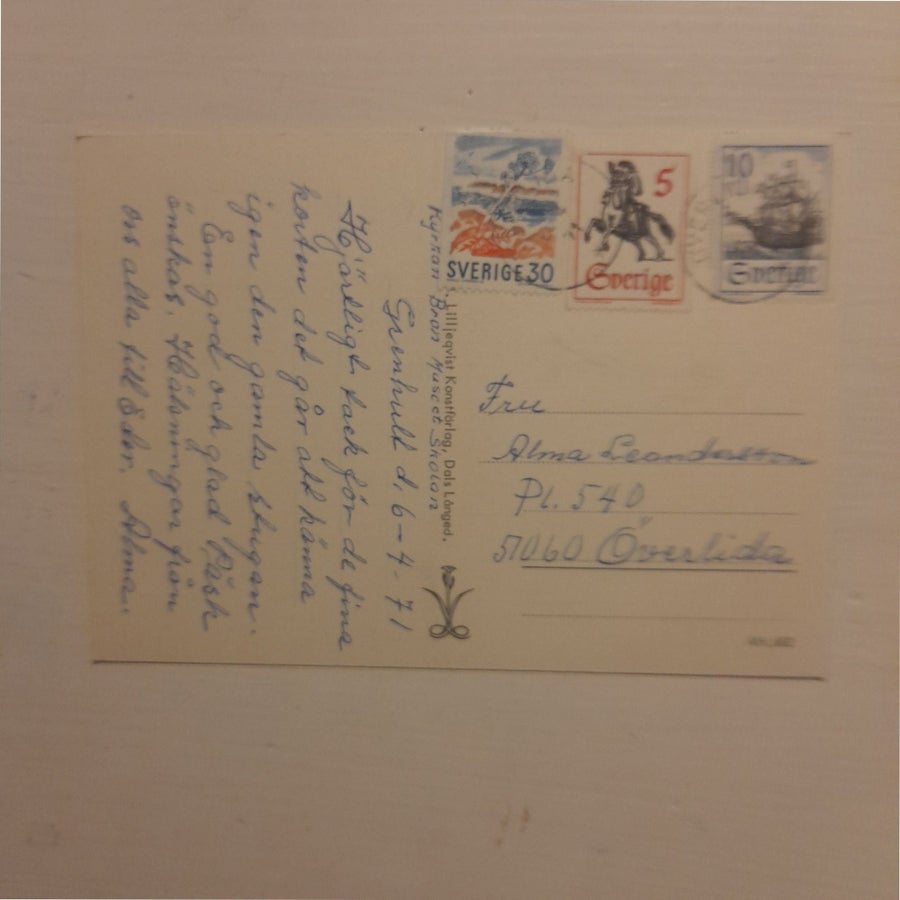 Grenhult d. 6-4-71
Hjärtligt tack för de fina
korten det går att känna
igen den gamla stugan.
Em god och glad Påsk
önskas. Hälsningar från
oss alla till Eder. Alma.
Kyrkan Bron Muséet Skolan
Lilljeqvist Konstförlag, Dals Långed.
SVERIGE 30
5
Sverige
10
Sverige
Fru
Alma Leandersson
Pl. 540
51060 Överlida